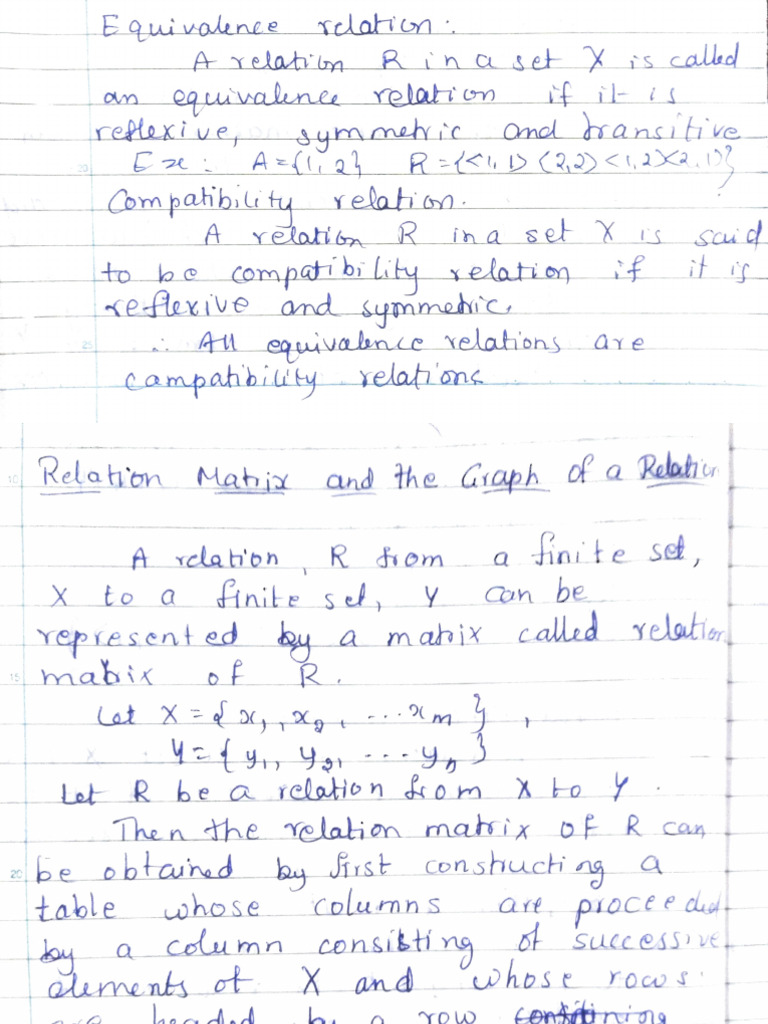 Equivalence relation:
A relation R in a set X is called
an equivalence relation if it is
reflexive, symmetric and transitive
Ex: A={1, 2} R={<1, 1> <2, 2> <1, 2> <2, 1>}
Compatibility relation.
A relation R in a set X is said
to be compatibility relation if it is
reflexive and symmetric.
∴ All equivalence relations are
campatibility relations
Relation Matrix and the Graph of a Relation
A relation, R from a finite set,
X to a finite set, Y can be
represented by a matrix called relation
matrix of R.
Let X = { x₁, x₂, ... xm },
Y = { y₁, y₂, ... yn }
Let R be a relation from X to Y.
Then the relation matrix of R can
be obtained by first constructing a
table whose columns are proceeded
by a column consisting of successive
elements of X and whose rows
are headed by a row